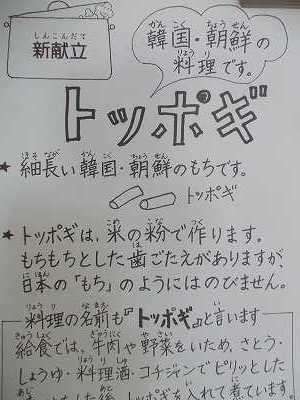 しんこんだて
新献立
かんこく ちょうせん
韓国・朝鮮の
りょうり
料理です。
トッポギ
ほそなが かんこく ちょうせん
★細長い韓国・朝鮮のもちです。
トッポギ
こめ こな つく
★トッポギは、米の粉で作ります。
は
もちもちとした歯ごたえがありますが、
にほん
日本の「もち」のようにはのびません。
りょうり なまえ い
料理の名前も『トッポギ』と言います
きゅうしょく ぎゅうにく やさい
給食では、牛肉や野菜をいため、さとう・
りょうりしゅ
しょうゆ・料理酒・コチジャンでピリッとした
トッポギを入れて煮ています。